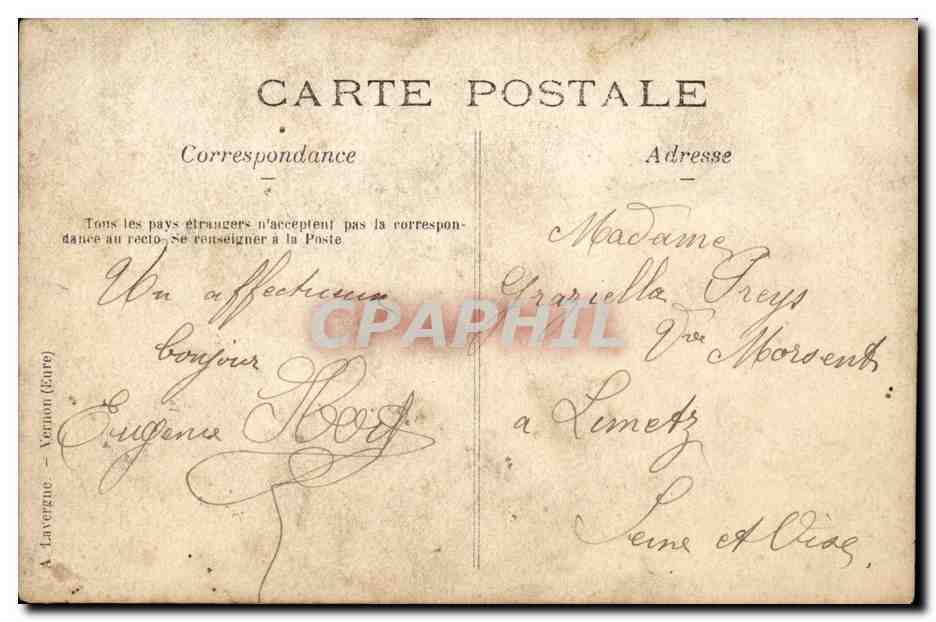 CARTE POSTALE
Correspondance
Tous les pays étrangers n'acceptent pas la correspon-
dance au recto. Se renseigner à la Poste
Un affectueux
bonjour
Eugénie
A. Lavergne. - Vernon (Eure)
Adresse
Madame
Graziella
Vve Morsent
a Limetz
Seine et Oise
CPAPHIL